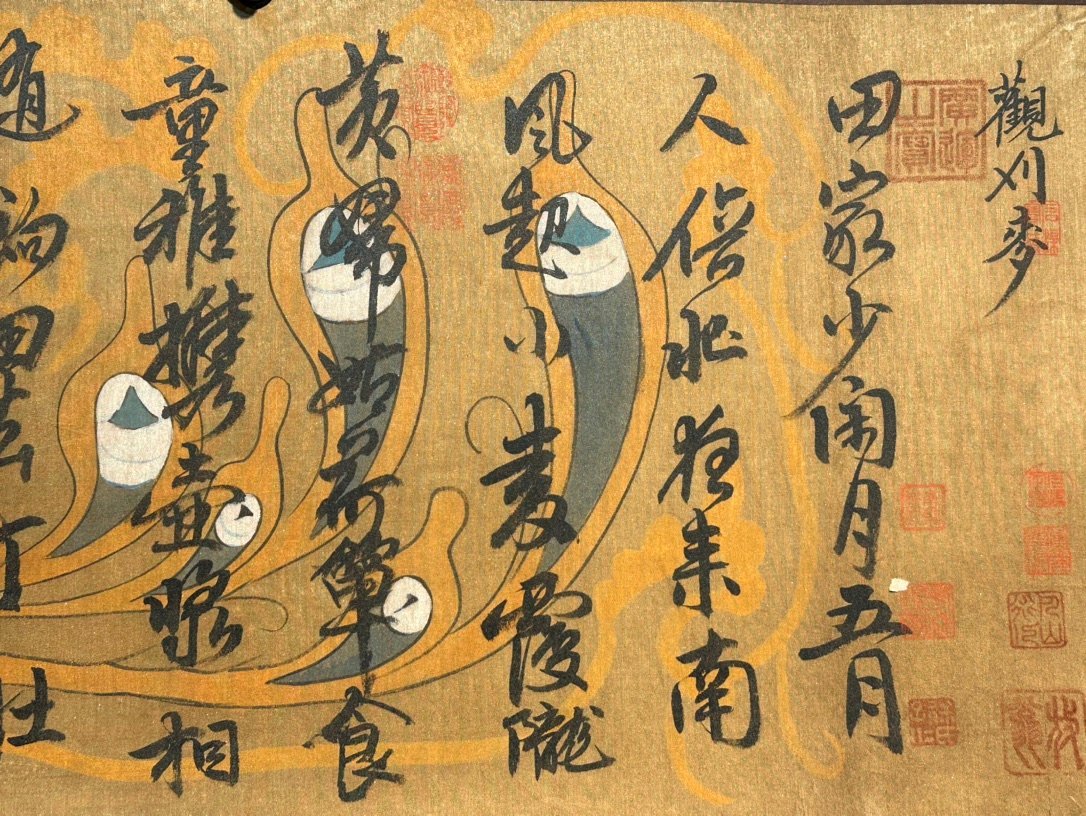 觀刈麥
田家少闲月五月
人倍忙夜来南
風起小麦覆隴
黄婦姑荷簞食
童稚攜壺漿相
隨餉田去丁壯